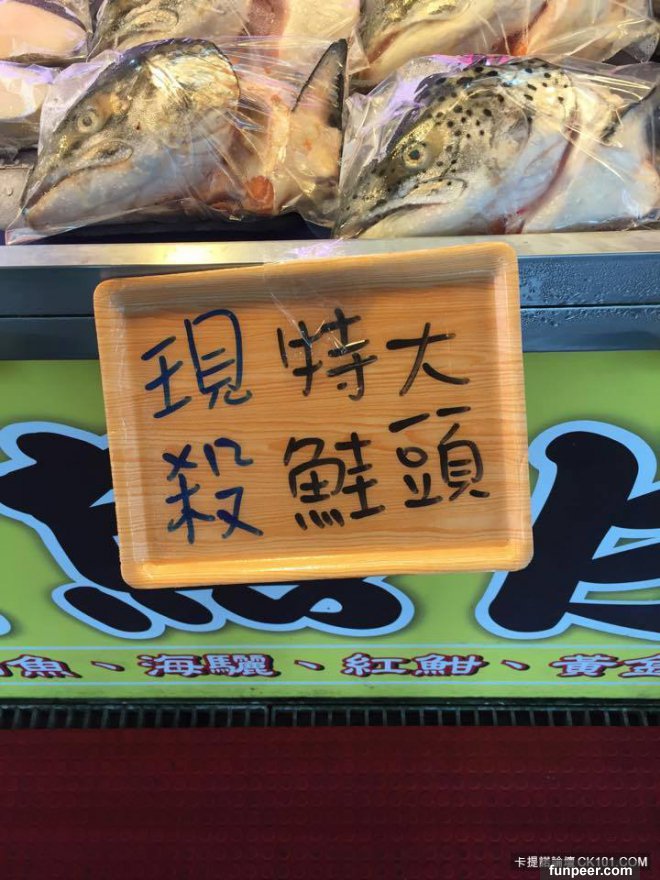 現殺
特大
鮭頭
魚、海鱺、紅魽、黃金
卡提諾論壇CK101.COM
funpeer.com